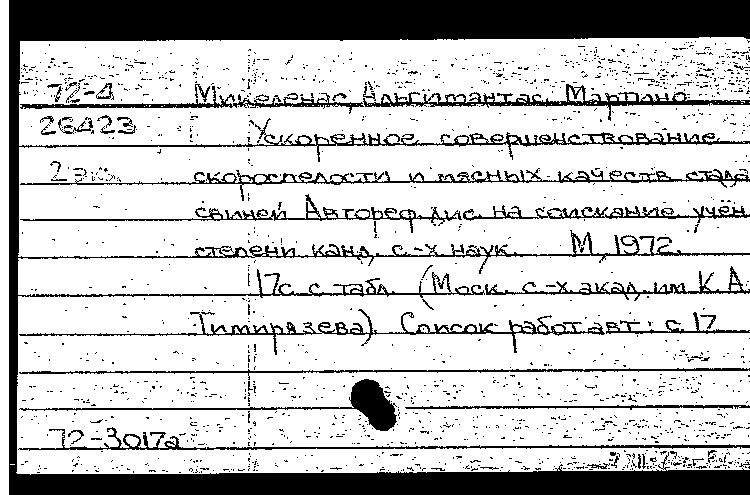 72-4 Микеленас, Альгимантас Мартино
26423 Ускоренное совершенствование
2 экз. скороспелости и мясных качеств стада
свиней Автореф. дис. на соискание учен
степени канд. с.-х наук. М, 1972.
17с с табл. (Моск. с.-х акад. им К. А
Тимирязева). Список работ авт: с 17
72-3017а